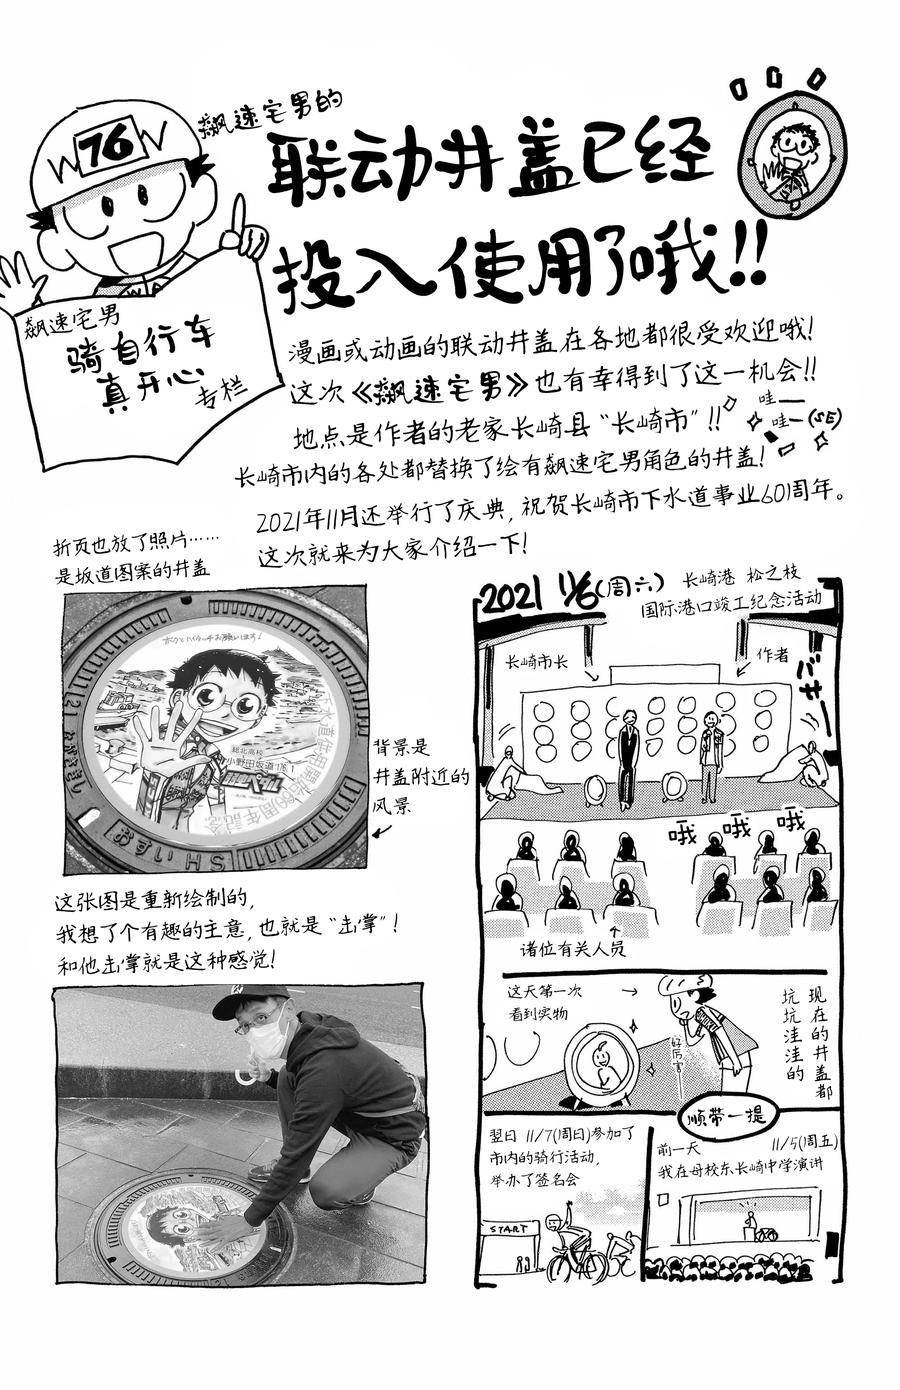 76
飙速宅男的
联动井盖已经
投入使用了哦!!
飙速宅男
骑自行车
真开心
专栏
漫画或动画的联动井盖在各地都很受欢迎哦!
这次《飙速宅男》也有幸得到了这一机会!!
地点是作者的老家长崎县“长崎市”!!
哇—
哇—(SE)
长崎市内的各处都替换了绘有飙速宅男角色的井盖!
2021年11月还举行了庆典,祝贺长崎市下水道事业601周年。
这次就来为大家介绍一下!
折页也放了照片……
是坂道图案的井盖
総北高校
小野田坂道
おすい HS
背景是
井盖附近的
风景
这张图是重新绘制的,
我想了个有趣的主意,也就是“击掌”!
和他击掌就是这种感觉!
2021 11/6(周六)
长崎港 松之枝
国际港口竣工纪念活动
长崎市长
作者
バサー
哦 哦 哦
诸位有关人员
这天第一次
看到实物
好厉害
现在的井盖都
坑坑洼洼的
顺带一提
翌日 11/7(周日)参加了
市内的骑行活动,
举办了签名会
START
前一天 11/5(周五)
我在母校东长崎中学演讲